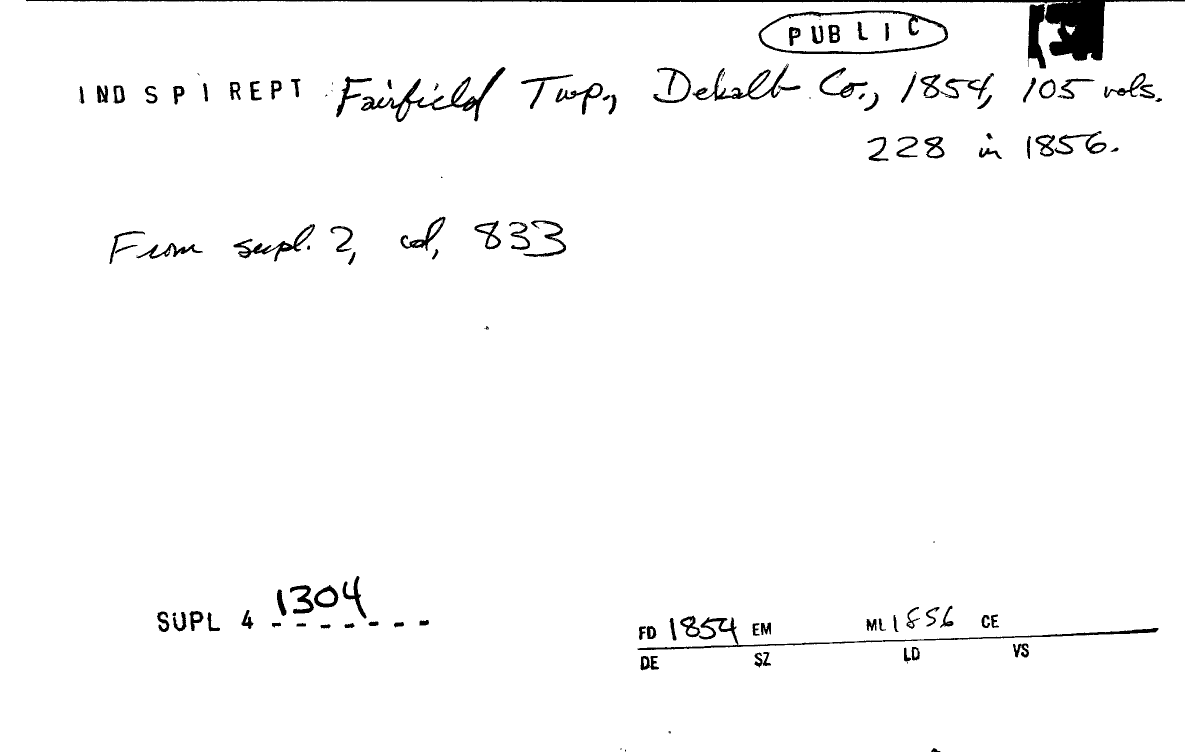 PUBLIC
IND SPI REPT Fairfield Twp, Dekalb Co., 1854, 105 vols.
228 in 1856.
From supl. 2, col, 833
SUPL 4 1304
FD 1854 EM ML 1856 CE
DE SZ LD VS